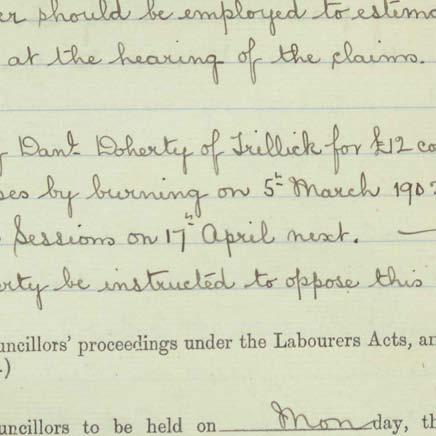 er should be employed to estima
at the hearing of the claims.
Danl. Doherty of Trillick for £12 co
ses by burning on 5th March 190
Sessions on 17th April next. —
erty be instructed to oppose this
uncillors' proceedings under the Labourers Acts, an
.)
uncillors to be held on Monday, th